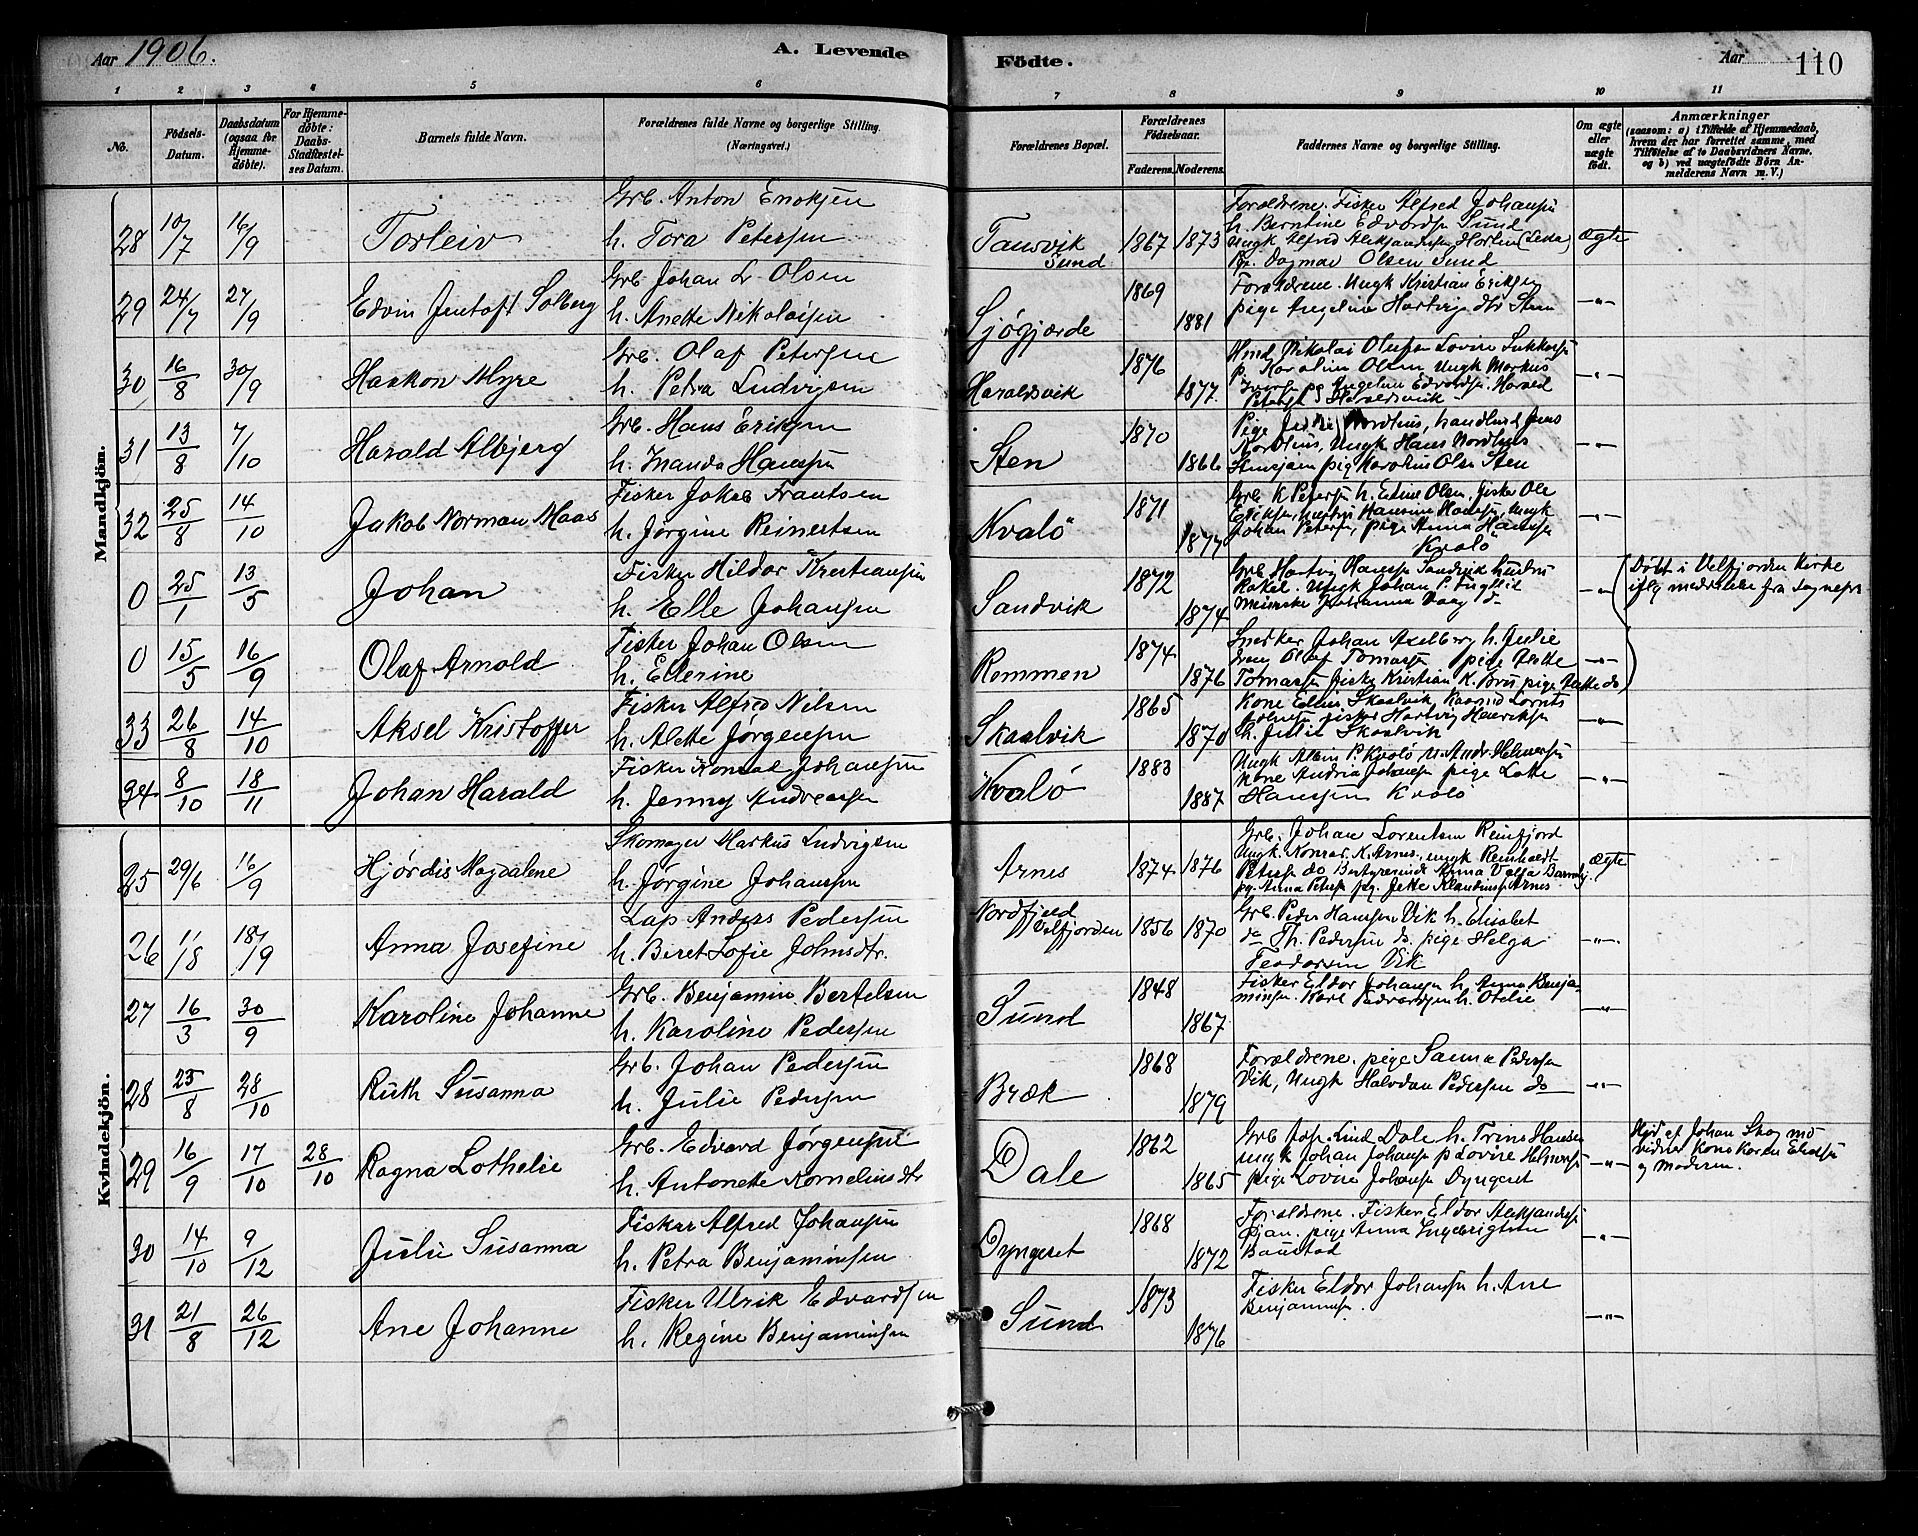 Aar 1906.
A. Levende
Födte.
Aar
110
1 2 3 4 5 6
7 8 9 10 11
No.
Födsels-Datum.
Daabsdatum (ogsaa for Hjemme-døbte).
For Hjemme-døbte: Daabs-Stadfæstel-ses Datum.
Barnets fulde Navn.
Forældrenes fulde Navne og borgerlige Stilling. (Næringsvei.)
Forældrenes Bopæl.
Forældrenes Födselsaar.
Faderens. Moderens.
Faddernes Navne og borgerlige Stilling.
Om ægte eller uægte födt.
Anmærkninger
(saasom: a) i Tilfælde af Hjemmedaab, hvem der har forrettet samme, med Tilföielse af to Daabsvidners Navne, og b) ved uægtefødte Börn An-melderens Navn m. V.)
Mandkjön.
28 10/7 16/9 Torleiv
Grb. Anton Enoksen
h. Tora Petersen
Tausvik Sund 1867 1873
Forældrene. Fisker Alfred Johansen
h. Berntine Edvards. Sund
Pg. Dagmar Olsen Sund
ægte
29 24/7 27/9 Edvin Jentoft Solberg
Grb Johan L. Olsen
h. Anette Nikolaisen
Sjögjærde 1869 1881
Forældrene. Ungk Kristian Eriksen
pige Angeline Hartvigsdtr Sten
-"-
30 16/8 30/9 Haakon Myre
Grb. Olaf Petersen
h. Petra Ludvigsen
Haraldsvik 1876 1877
p. Karoline Olsen Ungk Markus
-"-
31 13/8 7/10 Harald Albjerg
Grb. Hans Eriksen
h. Inanda Hansen
Sten 1870 1866
pige Karoline Olsen Sten
-"-
32 25/8 14/10 Jakob Norman Maas
Fisker Jakob Frantsen
h. Jørgine Reinertsen
Kvalö 1871 1877
Grb K Petersen h. Edine Olsen, fisker Ole
Johan Petersen, pige Anna Hansen
Kvalö
-"-
0 25/1 13/5 Johan
Fisker Hildor Kristiansen
h. Elle Johansen
Sandvik 1872 1874
Grb Hartvig Hansen Sandvik hustru
Rakel. Ungk Johan P. Fuglli
-"-
Döbt i Velfjorden Kirke
iflg meddelelse fra Sognepr
0 15/5 16/9 Olaf Arnold
Fisker Johan Olsen
h. Ellerine
Remmen 1874 1876
Snedker Johan Axelberg h. Julie
Tomassen fisker Kristian K. Bru pige Jette do
-"-
33 26/8 14/10 Aksel Kristoffer
Fisker Alfred Nilsen
h. Alette Jørgensen
Skaalvik 1865 1870
fisker Hartvig Henriksen
h. Julie Skaalvik
-"-
34 8/10 18/11 Johan Harald
Fisker Konrad Johansen
h. Jenny Andreassen
Kvalö 1883 1887
Kone Andrea Johansen pige Lotte
Hanssen Kvalö
-"-
Kvindekjön.
25 29/6 16/9 Hjördis Magdalene
Skomager Markus Ludvigsen
h. Jörgine Johansen
Arnes 1874 1876
Grb. Johan Lorentsen Reinfjord
Ungk. Konrad K. Arnes, ungk Reinholdt
pg. Anna Petersen pg. Jette Klaudiussen Arnes
ægte
26 11/8 18/9 Anna Josefine
Lap Anders Pedersen
h. Beret Sofie Johnsdtr.
Nordfjeld Velfjorden 1856 1870
Grb. Peder Hansen Vik h. Elisabet
do Th. Pedersen do. pige Helga
Teodorsen Vik
-"-
27 16/3 30/9 Karoline Johanne
Grb. Benjamin Bertelsen
h. Karoline Pedersen
Sund 1848 1867
Fisker Eldor Johansen h. Anna Benja-
minsen. Karl Edvardsen h. Otelie
-"-
28 25/8 28/10 Ruth Susanna
Grb. Johan Pedersen
h. Julie Pedersen
Bræk 1868 1879
Forældrene. pige Sanna Pedersen
Vik, Ungk Halvdan Pedersen do
-"-
29 16/9 17/10 28/10 Ragna Lothelie
Grb. Edvard Jørgensen
h. Antonette Korneliusdtr
Dale 1862 1865
Grb Jos. Lind Dale h. Trine Hansen
ungk Johan Johansen p Lovise Helmersen
pige Lovise Johansen Dyngeset
-"-
Hjd af Johan Skog med
vidner Kone Karen Eliassen
og Moderen.
30 14/10 9/12 Julie Susanna
Fisker Alfred Johansen
h. Petra Benjaminsen
Dyngeset 1868 1872
Forældrene. Fisker Eldor Aleksandersen
pige Anna Ingebrigtsen
Baustad
-"-
31 21/8 26/12 Ane Johanne
Fisker Ulrik Edvardsen
h. Regine Benjaminsen
Sund 1873 1876
Fisker Eldor Johansen h. Ane
Benjaminsen.
-"-